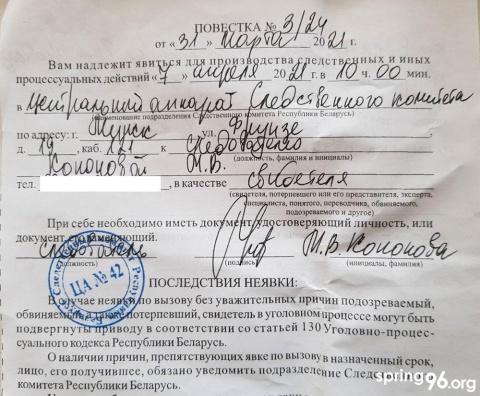 ПОВЕСТКА № 3/24
от «31» марта 2021 г.
Вам надлежит явиться для производства следственных и иных
процессуальных действий «7» апреля 2021 г. в 10 ч. 00 мин.
в центральный аппарат Следственного комитета
(наименование подразделения Следственного комитета Республики Беларусь)
по адресу: г. Минск ул. Фрунзе
д. 19, каб. 121 к следователю
(должность, фамилия и инициалы)
Кононовой М.В.
тел. , в качестве свидетеля
(свидетеля, потерпевшего или его представителя, эксперта,
специалиста, понятого, переводчика, обвиняемого,
подозреваемого и другое)
При себе необходимо иметь документ, удостоверяющий личность, или
документ, заменяющий.
Следователь М.В. Кононова
(должность) (подпись) (инициалы, фамилия)
ЦА № 42
ПОСЛЕДСТВИЯ НЕЯВКИ:
В случае неявки по вызову без уважительных причин подозреваемый,
обвиняемый, а также потерпевший, свидетель в уголовном процессе могут быть
подвергнуты приводу в соответствии со статьей 130 Уголовно-процес-
суального кодекса Республики Беларусь.
О наличии причин, препятствующих явке по вызову в назначенный срок,
лицо, его получившее, обязано уведомить подразделение Следственного
комитета Республики Беларусь.
spring96.org